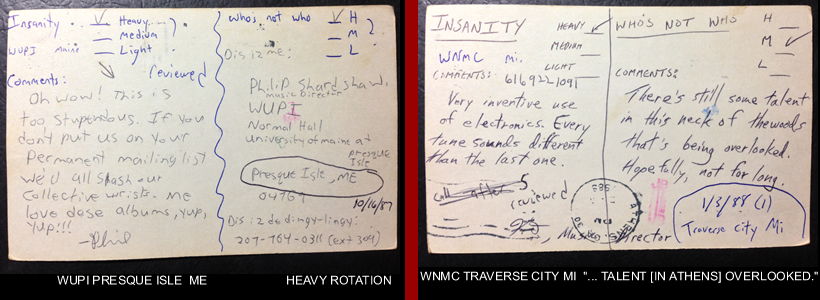 Insanity . . ✓ Heavy....
Medium
WUPI maine Light
reviewed
Comments:
Oh wow! This is
too stupendous. If you
don't put us on your
permanent mailing list
we'd all slash our
collective wrists. Me
love dese albums, yup,
yup!!!
-Phil
Who's not who ✓ H
M
L
Dis iz me:
Philip Shardshaw,
music Director
WUPI
Normal Hall
University of maine at
presque
Isle
Presque Isle, ME
04769
10/16/87
Dis iz de dingy-lingy:
207-764-0311 (ext 304)
INSANITY HEAVY ✓
MEDIUM
WNMC mi.
LIGHT
COMMENTS: 6169221091
Very inventive use
of electronics. Every
tune sounds different
than the last one.
call after 5
reviewed
WHO'S NOT WHO H
M ✓
L
COMMENTS:
There's still some talent
in this neck of the woods
that's being overlooked.
Hopefully, not for long.
Music Director
1/3/88 (1)
Traverse city Mi
WUPI PRESQUE ISLE ME HEAVY ROTATION
WNMC TRAVERSE CITY MI "... TALENT [IN ATHENS] OVERLOOKED."